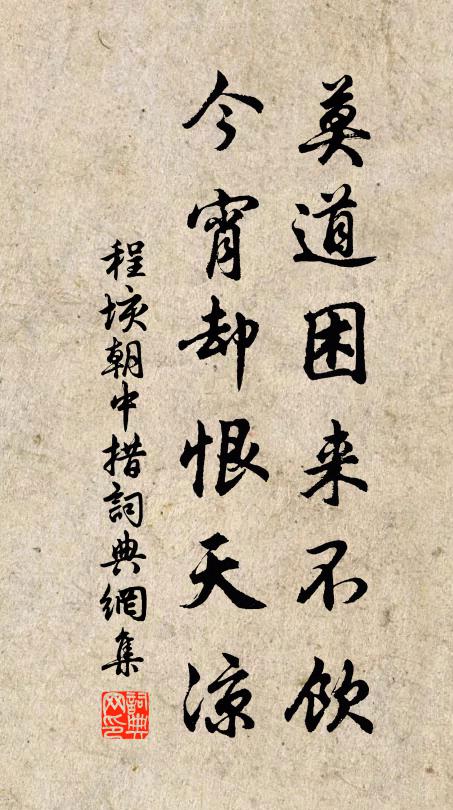 莫道困来不饮
今宵却恨天凉
程垓朝中措詞典網集
詞典
网印